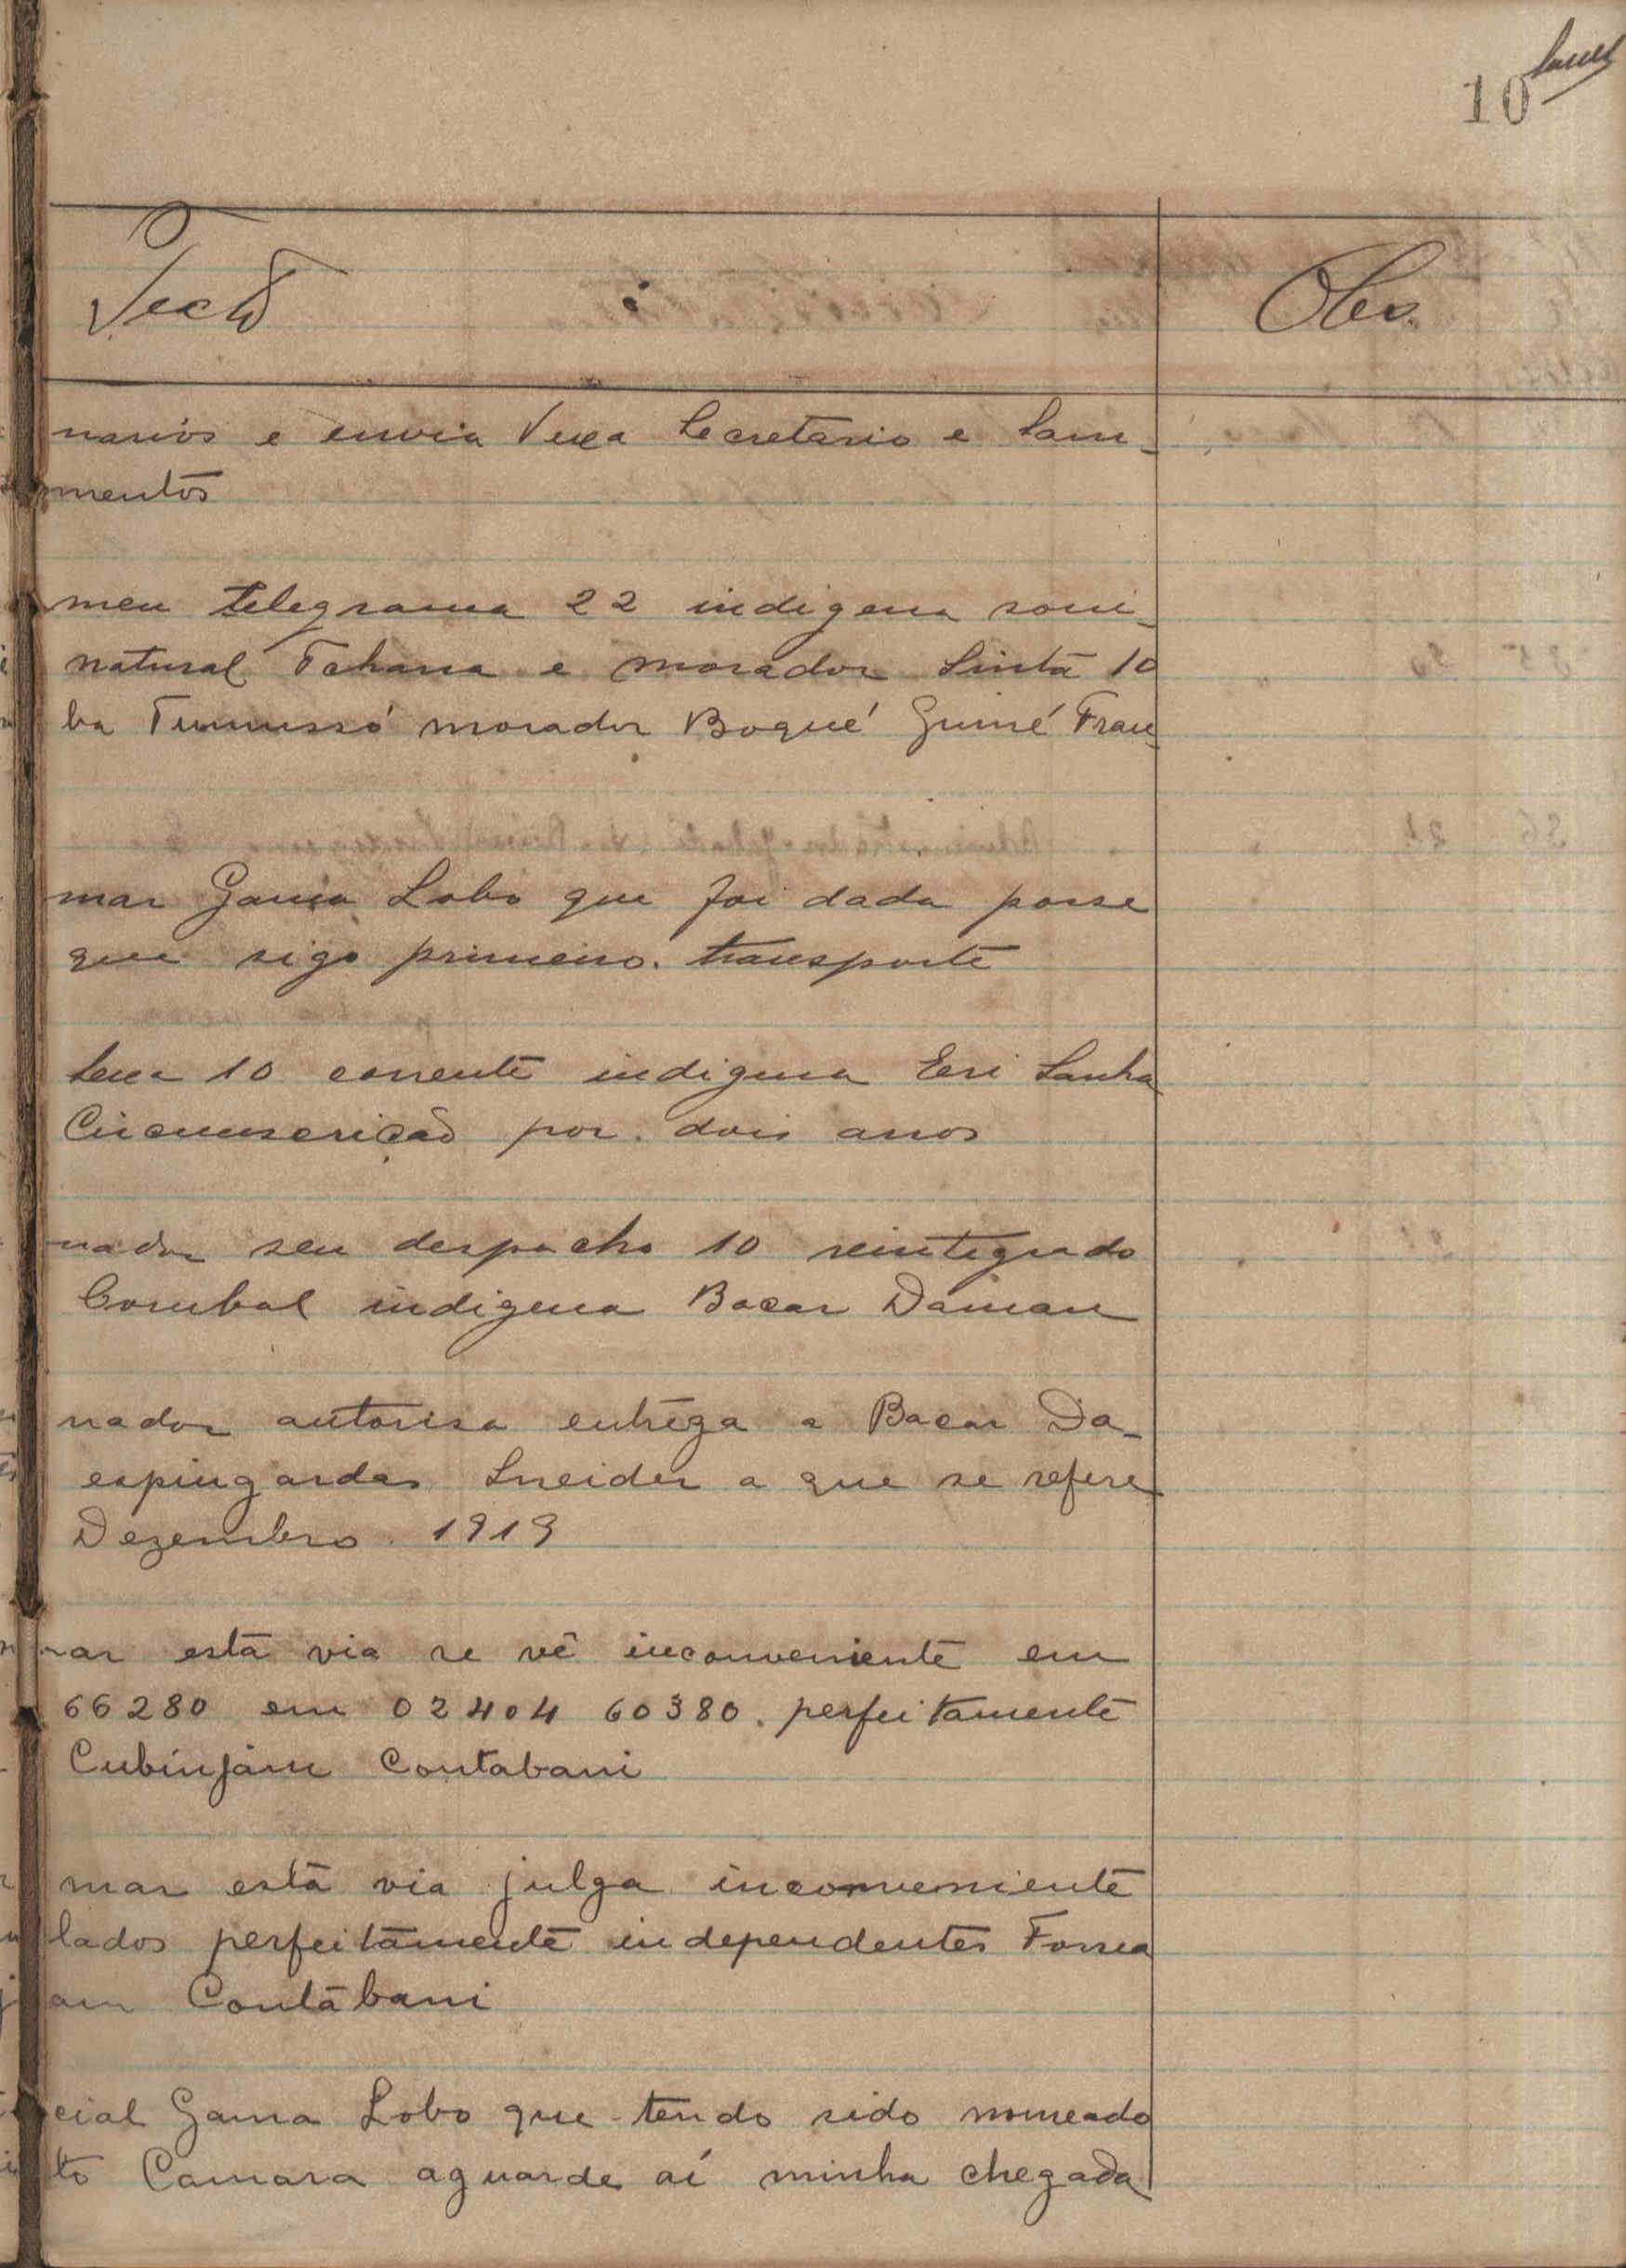 10
Texto
Obs.
narios e envia Vexa Secretario e Sam-
mentos
meu telegrama 22 indigena soni-
natural Tahana e morador Sintã 10
ba Tumussó morador Boqué Guiné Fran-
mar Gama Lobo que foi dada posse
que siga primeiro transporte
10 corrente indigena Eri Sanha
Circunscricão por dois anos
nador seu despacho 10 reintegrado
Corubal indigena Bacar Daman
nador autorisa entréga a Bacar Da-
espingardas Sneider a que se refere
Dezembro 1919
nar está via se vê inconveniente em
66280 em 02404 60380. perfeitamente
Cubinjam Contabani
mar está via julga inconveniente
lados perfeitamente independentes Forrea
am Contabani
cial Gama Lobo que tendo sido nomeado
to Camara aguarde aí minha chegada